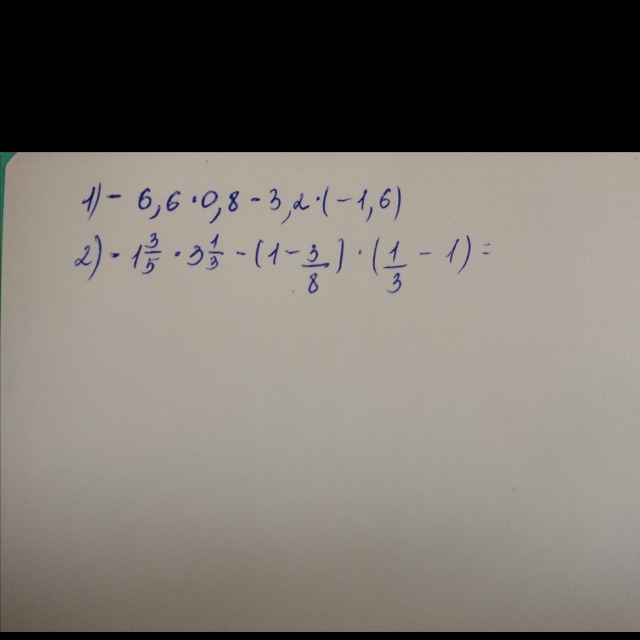 1) - 6,6 · 0,8 - 3,2 · (- 1,6)
2) - 1 3/5 · 3 1/3 - (1 - 3/8) · (1/3 - 1) =